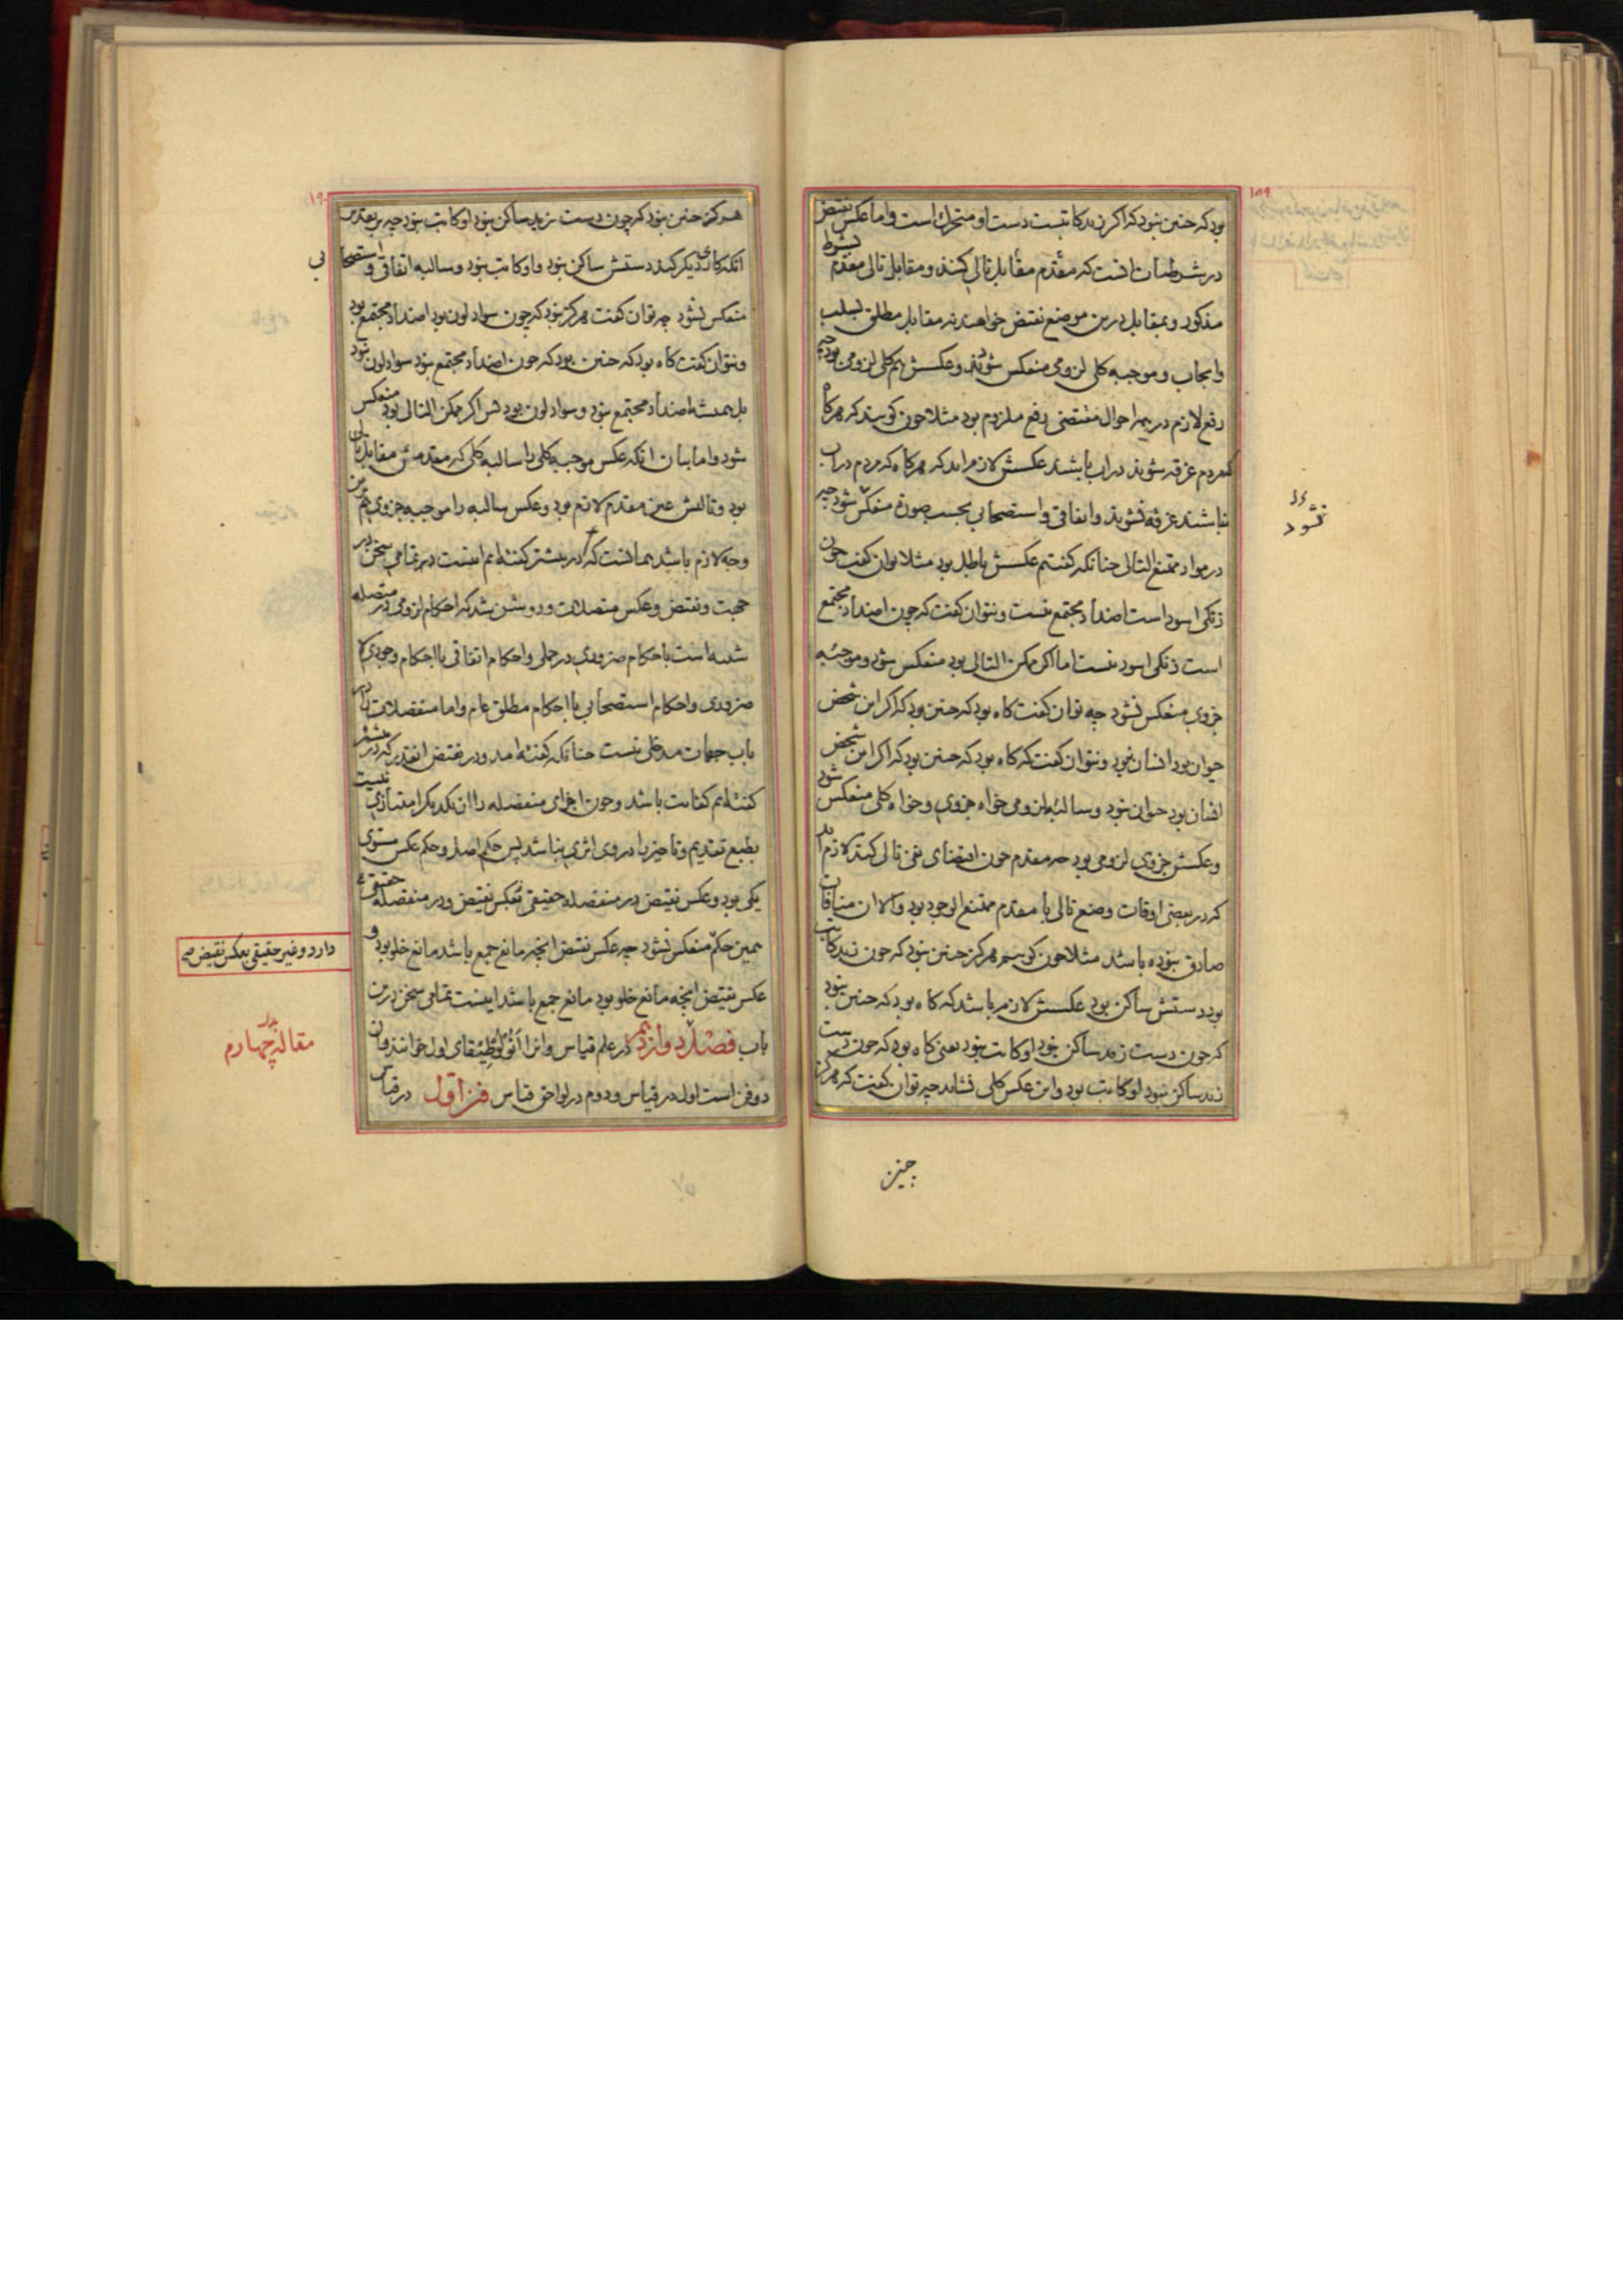 ۱۸۹
بود که چنین نبود که اگر زید کاتبست دست او متحرک است و اما عکس نقیض
در شرطیات آنست که مقدم مقابل تالی کنند و مقابل تالی مقدم بشرط
مذکور و بمقابل درین موضع نقیض خواهند نه مقابل مطلق بسلب
و ایجاب و موجبه کلی لزومی منعکس شود و عکسش هم کلی لزومی بود چه
رفع لازم در همه احوال مقتضی رفع ملزوم بود مثلا چون گویند که هرگاه
که مردم غرقه شوند در آب باشند عکسش لازم آید که هرگاه که مردم در آب
نباشند غرقه نشوند و اتفاقی و استصحابی بحسب صورة منعکس شود چه
در مواد ممتنع التالی چنانکه گفتیم عکسش باطل بود مثلا توان گفت چون
زنگی اسود است اضداد مجتمع نیست و نتوان گفت که چون اضداد مجتمع
است زنگی اسود نیست اما اگر ممکن التالی بود منعکس شود و موجبه
جزوی منعکس نشود چه توان گفت گاه بود که چنین بود که اگر این شخص
حیوان بود انسان نبود و نتوان گفت که گاه بود که چنین بود که اگر این شخص
انسان بود حیوان نبود و سالبه لزومی خواه جزوی و خواه کلی منعکس شود
و عکسش جزوی لزومی بود چه مقدم چون اقتضای نفی تالی کند لازم آید
که در بعضی اوقات وضع تالی با مقدم ممتنع الوجود بود و الا آن منافات
صادق نبوده باشد مثلا چون گوییم هرگز چنین نبود که چون زید کاتب
بود دستش ساکن بود عکسش لازم باشد که گاه بود که چنین نبود
که چون دست زید ساکن نبود او کاتب نبود یعنی گاه بود که چون دست
زید ساکن نبود او کاتب بود و این عکس کلی نشاید چه توان گفت که هرگز
نشود
چنین
۱۹۰
هرگز چنین نبود که چون دست زید ساکن نبود او کاتب نبود چه بر تقدیر
آنکه کاری دیگر کند دستش ساکن نبود و او کاتب نبود و سالبه اتفاقی و استصحا
بی
منعکس نشود چه توان گفت هرگز نبود که چون سواد لون بود اضداد مجتمع بود
و نتوان گفت گاه بود که چنین بود که چون اضداد مجتمع نبود سواد لون نبود
بل همیشه اضداد مجتمع نبود و سواد لون بود پس اگر ممکن التالی بود منعکس
شود و اما بیان آنکه عکس موجبه کلی را سالبه کلی که مقدمش مقابل تالی
بود و تالیش عین مقدم لازم بود و عکس سالبه را موجبه جزوی هم برین
وجه لازم باشد همانست که در پیشتر گفته‌ایم اینست در تمامی سخن در
جهت و نقیض و عکس متصلات و روشن شد که احکام لزومی در متصله
شبیه است باحکام ضروری در حملی و احکام اتفاقی با احکام وجودی لا
ضروری و احکام استصحابی با احکام مطلق عام و اما منفصلات را در
باب جهات مدخلی نیست چنانکه گفته آمد و در نقیض آنقدر که در پیشتر
گفته‌ایم کفایت باشد و چون اجزای منفصله را از یکدیگر امتیازی نیست
بطبع تقدیم و تاخیر را در وی اثری نباشد پس حکم اصل و حکم عکس مستوی
یکی بود و عکس نقیض در منفصله حقیقی بعکس نقیض و در منفصله حقیقی
همین حکم منعکس نشود چه عکس نقیض آنچه مانع جمع باشد مانع خلو بود و
عکس نقیض آنچه مانع خلو بود مانع جمع باشد اینست تمامی سخن درین
باب فصل دوازدهم در علم قیاس و آنرا انولوطیقای اول خوانند و آن
دو فن است اول در قیاس و دوم در لواحق قیاس فن اول در قیاس
دارد و غیر حقیقی بعکس نقیض صح
مقاله چهارم